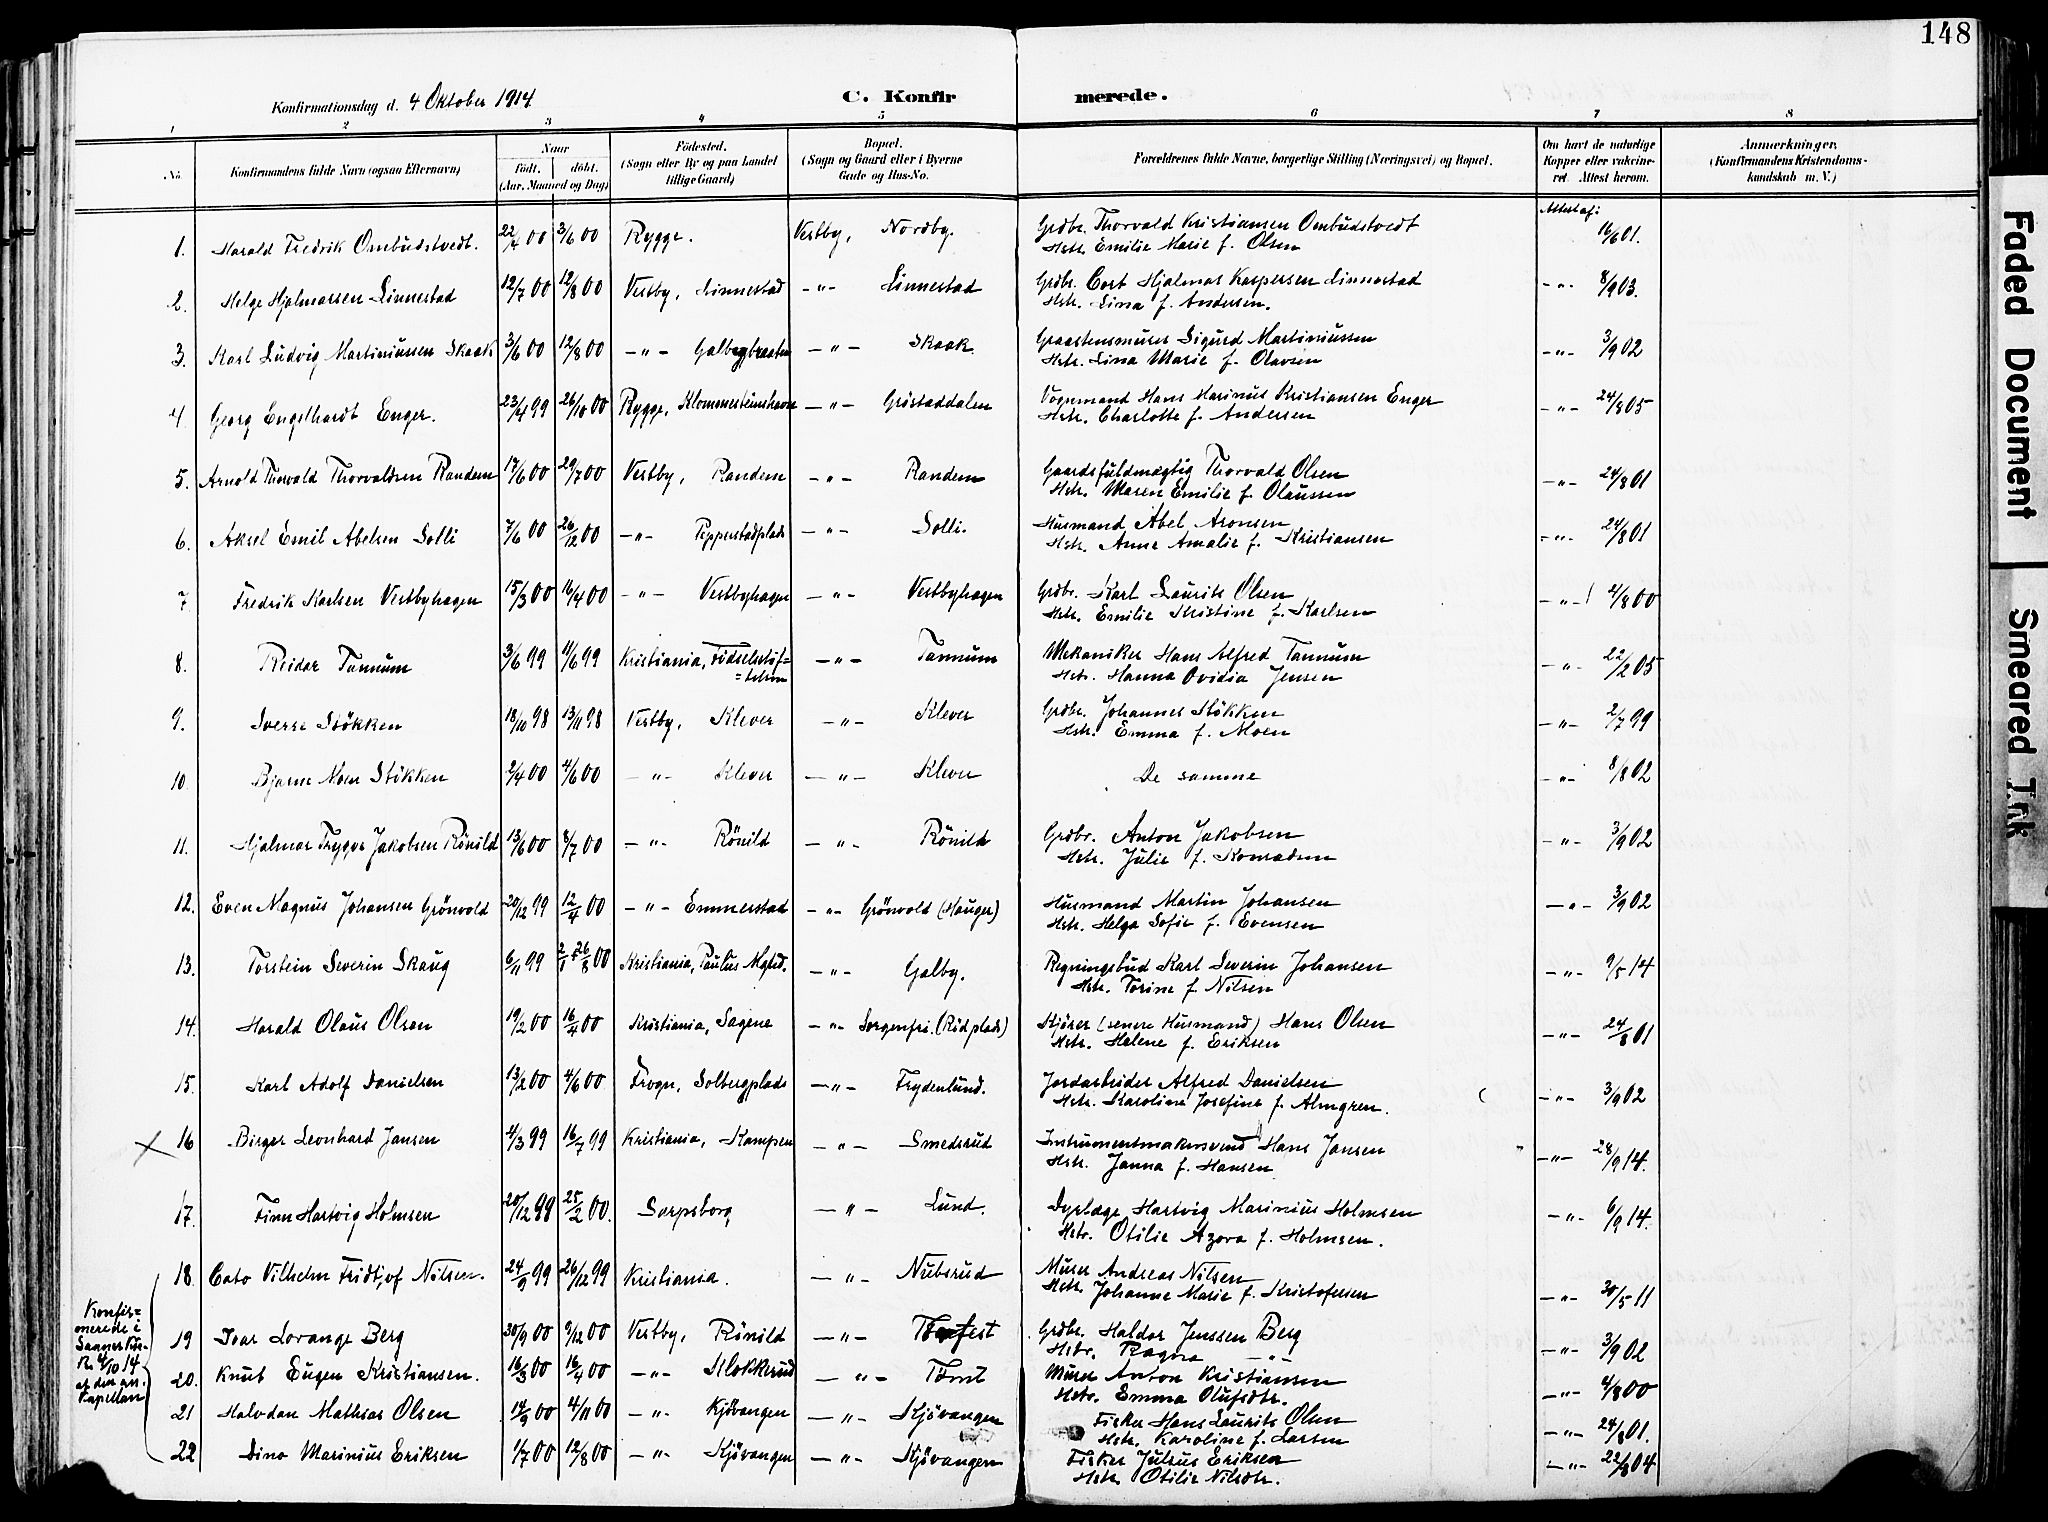 148
Konfirmationsdag d. 4 Oktober 1914
C. Konfirmerede.
1 2 3 4 5 6 7 8
No. Konfirmandens fulde Navn (ogsaa Efternavn) Naar født. døbt. (Aar, Maaned og Dag) Fødested. (Sogn eller By og paa Landet tillige Gaard) Bopæl. (Sogn og Gaard eller i Byerne Gade og Hus-No. Forældrenes fulde Navne, borgerlige Stilling (Næringsvei) og Bopæl. Om havt de naturlige Kopper eller vaccineret. Attest herom. Anmærkninger. (Konfirmandens Kristendomskundskab m. V.)
Attest af:
1. Harald Fredrik Ombudstvedt. 22/4 00 3/6 00 Rygge. Vestby, Nordby. Grdbr. Thorvald Kristiansen Ombudstvedt 16/6 01.
Hstr. Emilie Marie f. Olsen
2. Helge Hjalmarsen Linnestad 12/7 00 12/8 00 Vestby, Linnestad -"- Linnestad Grdbr. Cort Hjalmar Kaspersen Linnestad -"- 8/9 03.
Hstr. Lina f. Andersen.
3. Karl Ludvig Martiniussen Skaak 3/6 00 12/8 00 -"- Galbybraaten -"- Skaak Graastensmurer Sigurd Martiniussen -"- 3/9 02
Hstr. Lina Marie f. Olavsen
4 Georg Engelhardt Enger. 23/4 99 26/10 00 Rygge, Klommesteinshavn -"- Gristaddalen Vognmand Hans Marinus Kristiansen Enger -"- 24/8 05
Hstr. Charlotte f. Andersen
5. Arnold Thorvald Thorvaldsen Randem 17/6 00 29/7 00 Vestby, Randem -"- Randem Gaardsfuldmægtig Thorvald Olsen -"- 24/8 01
Hstr. Maren Emilie f. Olaussen
6. Aksel Emil Abelsen Solli 7/6 00 26/12 00 -"- Pepperstadplads -"- Solli. Husmand Abel Aronsen -"- 24/8 01
Hstr. Anne Amalie f. Kristiansen
7 Fredrik Karlsen Vestbyhagen 15/3 00 16/4 00 -"- Vestbyhagen -"- Vestbyhagen Grdbr. Karl Laurits Olsen -"- 4/8 00
Hstr. Emilie Kristine f. Karlsen
8. Reidar Tannum 3/6 99 11/6 99 Kristiania, Födselsstif= -"- Tannum Mekaniker Hans Alfred Tannum -"- 22/2 05
=telsen Hstr. Hanna Ovidia Jensen
9. Sverre Stökken 18/10 98 13/11 98 Vestby, Klever -"- Klever Grdbr. Johannes Stökken -"- 2/7 99
Hstr. Emma f. Moen
10. Bjarne Moen Stökken 2/4 00 4/6 00 -"- Klever -"- Klever De samme -"- 8/8 02
11. Hjalmar Trygve Jakobsen Rönild 13/6 00 8/7 00 -"- Rönild -"- Rönild Grdbr. Anton Jakobsen -"- 3/9 02
Hstr. Julie f. Konradsen
12. Even Magnus Johansen Grönvold 20/12 99 12/4 00 -"- Emmerstad -"- Grönvold (Hauger) Husmand Martin Johansen -"- 3/9 02
Hstr. Helga Sofie f. Evensen
13. Torstein Severin Skaug 6/11 99 26/8 00 Kristiania, Paulus Mghd. -"- Galby. Regningsbud Karl Severin Johansen -"- 9/5 14
Hstr. Torine f. Nilsen
14. Harald Olaus Olsen 19/2 00 16/4 00 Kristiania, Sagene -"- Sorgenfri. (Rödplads) Kjörer (senere Husmand) Hans Olsen -"- 24/8 01
Hstr. Helene f. Eriksen
15. Karl Adolf Danielsen 13/2 00 4/6 00 Frogn, Solbergplads -"- Frydenlund. Jordarbeider Alfred Danielsen -"- 3/9 02
Hstr. Karoline Josefine f. Almgren.
X 16 Birger Leonhard Jansen 4/3 99 16/7 99 Kristiania, Kampen -"- Smedsrud Instrumentmakersvend Hans Jansen -"- 28/9 14.
Hstr. Janna f. Hansen
17. Finn Hartvig Holmsen 20/12 99 25/2 00. Sarpsborg -"- Lund. Dyrlæge Hartvig Marinius Holmsen -"- 6/9 14.
Hstr. Otilie Azora f. Holmsen.
18. Cato Vilhelm Fridtjof Nilsen. 24/9 99 26/12 99 Kristiania. -"- Nubsrud Murer Andreas Nilsen -"- 30/5 11
Hstr. Johanne Marie f. Kristofersen
Konfir=
merede i
Saaner Kir-
ke 4/10 14
af den an.
Kapellan
19 Ivar Lorange Berg 30/9 00 9/12 00 Vestby, Rönild -"- Grdbr. Haldor Jenssen Berg -"- 3/9 02
Hstr. Ragna -"-
20. Knut Eugen Kristiansen. 16/3 00 16/4 00 -"- Klokkerud -"- Tomt Murer Anton Kristiansen -"- 4/8 00
Hstr. Emma Olufsdtr.
21 Halvdan Mathias Olsen 14/9 00 4/11 00 -"- Kjövangen -"- Kjövangen Fisker Hans Laurits Olsen -"- 24/8 01.
Hstr. Karoline f. Larsen
22 Dino Marinius Eriksen 1/7 00 12/8 00 -"- Kjövangen -"- Kjövangen Fisker Julius Eriksen -"- 22/8 04
Hstr. Otilie Nilsdtr.
Faded Document
Smeared Ink